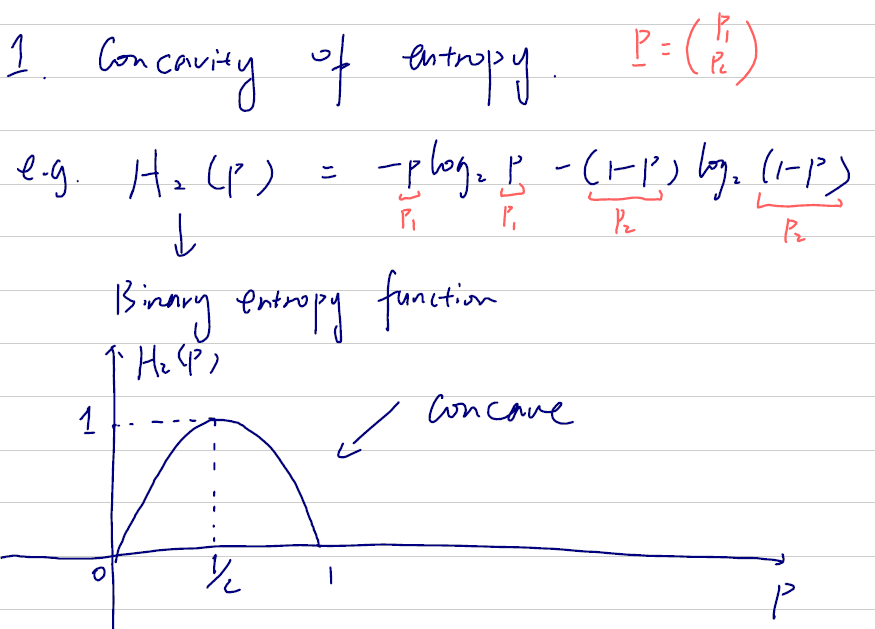 1. Concavity of entropy. P = (P₁ P₂)
e.g. H₂(p) = -p log₂ p - (1-p) log₂ (1-p)
P₁ P₁ P₂ P₂
↓
Binary entropy function
H₂(p)
1 concave
0 1/2 1 p